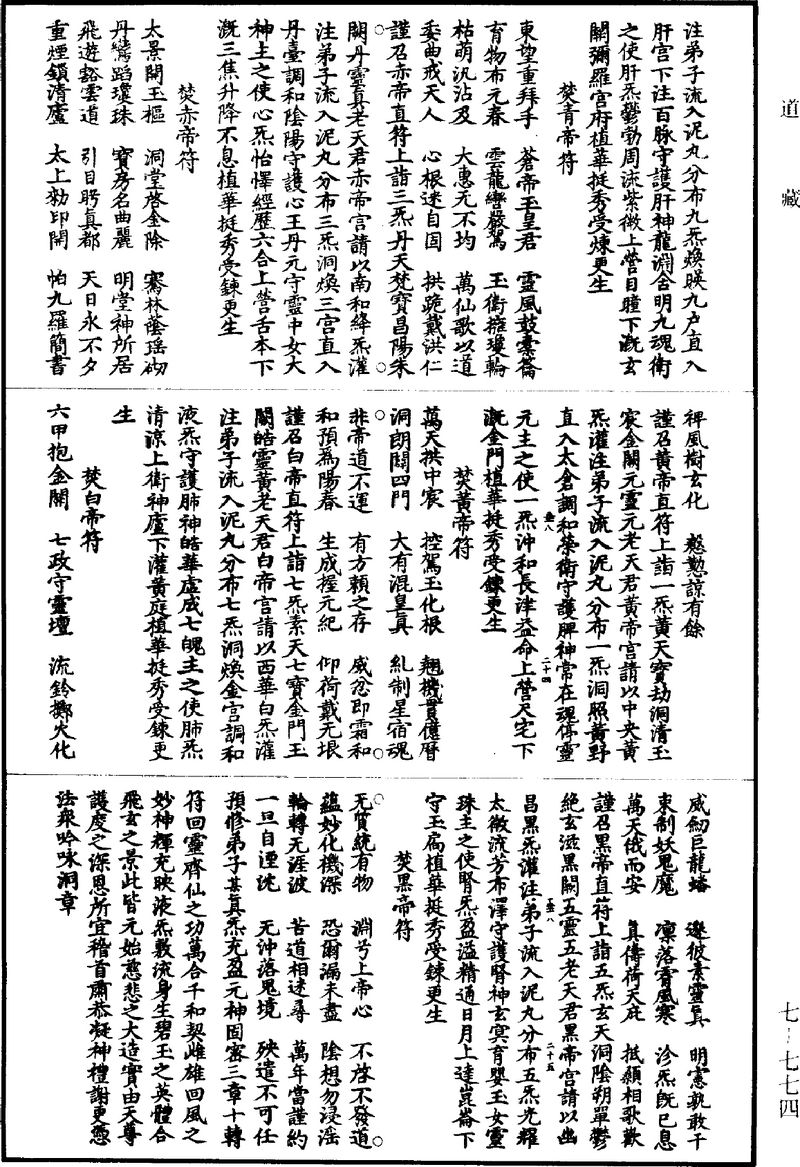 道藏
注弟子流入泥丸分布九炁煥暎九户直入
肝宫下注百脉守護肝神龍淵含明九魂衛
之使肝炁鬱勃周流紫微上營目瞳下溉玄
闕彌羅宫府植華挺秀受煉更生
焚青帝符
東望重拜手 蒼帝玉皇君 靈風鼓橐籥
育物布元春 雲龍巒嚴駕 玉衛擁瓊輪
枯萌汎沾及 大惠无不均 萬仙歌以道
委曲戒天人 心根迷自固 拱跪戴洪仁
謹召赤帝直符上詣三炁丹天梵寶昌陽朱
闕丹靈真老天君赤帝宫請以南和絳炁灌
注弟子流入泥丸分布三炁洞煥三宫直入
丹臺調和陰陽守護心王丹元守靈中女大
神主之使心炁怡懌經歷六合上營舌本下
溉三焦升降不息植華挺秀受鍊更生
焚赤帝符
太景開玉樞 洞堂啓金除 騫林蔭瑶砌
丹鸞蹈瓊珠 寶房名曲麗 明堂神所居
飛遊豁雲道 引目眄真都 天日永不夕
重煙鎖清廬 太上勑印開 怕九羅簡書
稗風樹玄化 慇懃諒有餘
謹召黄帝直符上詣一炁黄天寶劫洞清玉
宸金闕元靈元老天君黄帝宫請以中央黄
炁灌注弟子流入泥丸分布一炁洞照黄野
直入太倉調和榮衛守護脾神常在魂停靈
元主之使一炁沖和長津益命上營尺宅下
溉金門植華挺秀受鍊更生
焚黄帝符
萬天拱中宸 控駕玉化根 翹機貫億曆
洞朗闢四門 大有混皇真 糺制星宿魂
非帝道不運 有方賴之存 威忿即霜和
和預爲陽春 生成握元紀 仰荷戴无垠
謹召白帝直符上詣七炁素天七寶金門玉
闕皓靈黄老天君白帝宫請以西華白炁灌
注弟子流入泥丸分布七炁洞煥金宫調和
液炁守護肺神皓華虛成七魄主之使肺炁
清涼上衛神廬下灌黄庭植華挺秀受鍊更
生
焚白帝符
六甲抱金關 七政守靈壇 流鈴擲火化
威劒巨龍蟠 邈彼素靈真 明憲孰敢干
束制妖鬼魔 凜落霄風寒 沴炁旣已息
萬天俄而安 真儔荷天庇 抵額相歌歎
謹召黑帝直符上詣五炁玄天洞陰朔單鬱
絶玄滋黑闕五靈五老天君黑帝宫請以幽
昌黑炁灌注弟子流入泥丸分布五炁光耀
太微流芳布澤守護腎神玄冥育嬰玉女靈
珠主之使腎炁盈溢精通日月上達崑崙下
守玉扃植華挺秀受鍊更生
焚黑帝符
无質統有物 淵兮上帝心 不啓不發道
蘊妙化機深 恐爾漏未盡 陰想勿浸淫
輪轉无涯波 苦道相迷尋 萬年當謹約
一旦自湮沈 无沖落鬼境 殃遣不可任
預修弟子某真炁充盈元神固審三章十轉
符回靈齊仙之功萬合千和契雌雄回風之
妙神輝充映液炁敷流身生碧玉之英體合
飛玄之景此皆元始慈悲之大造實由天尊
護度之深恩所宜稽首肅恭凝神禮謝更憑
法衆吟咏洞章
七—七七四